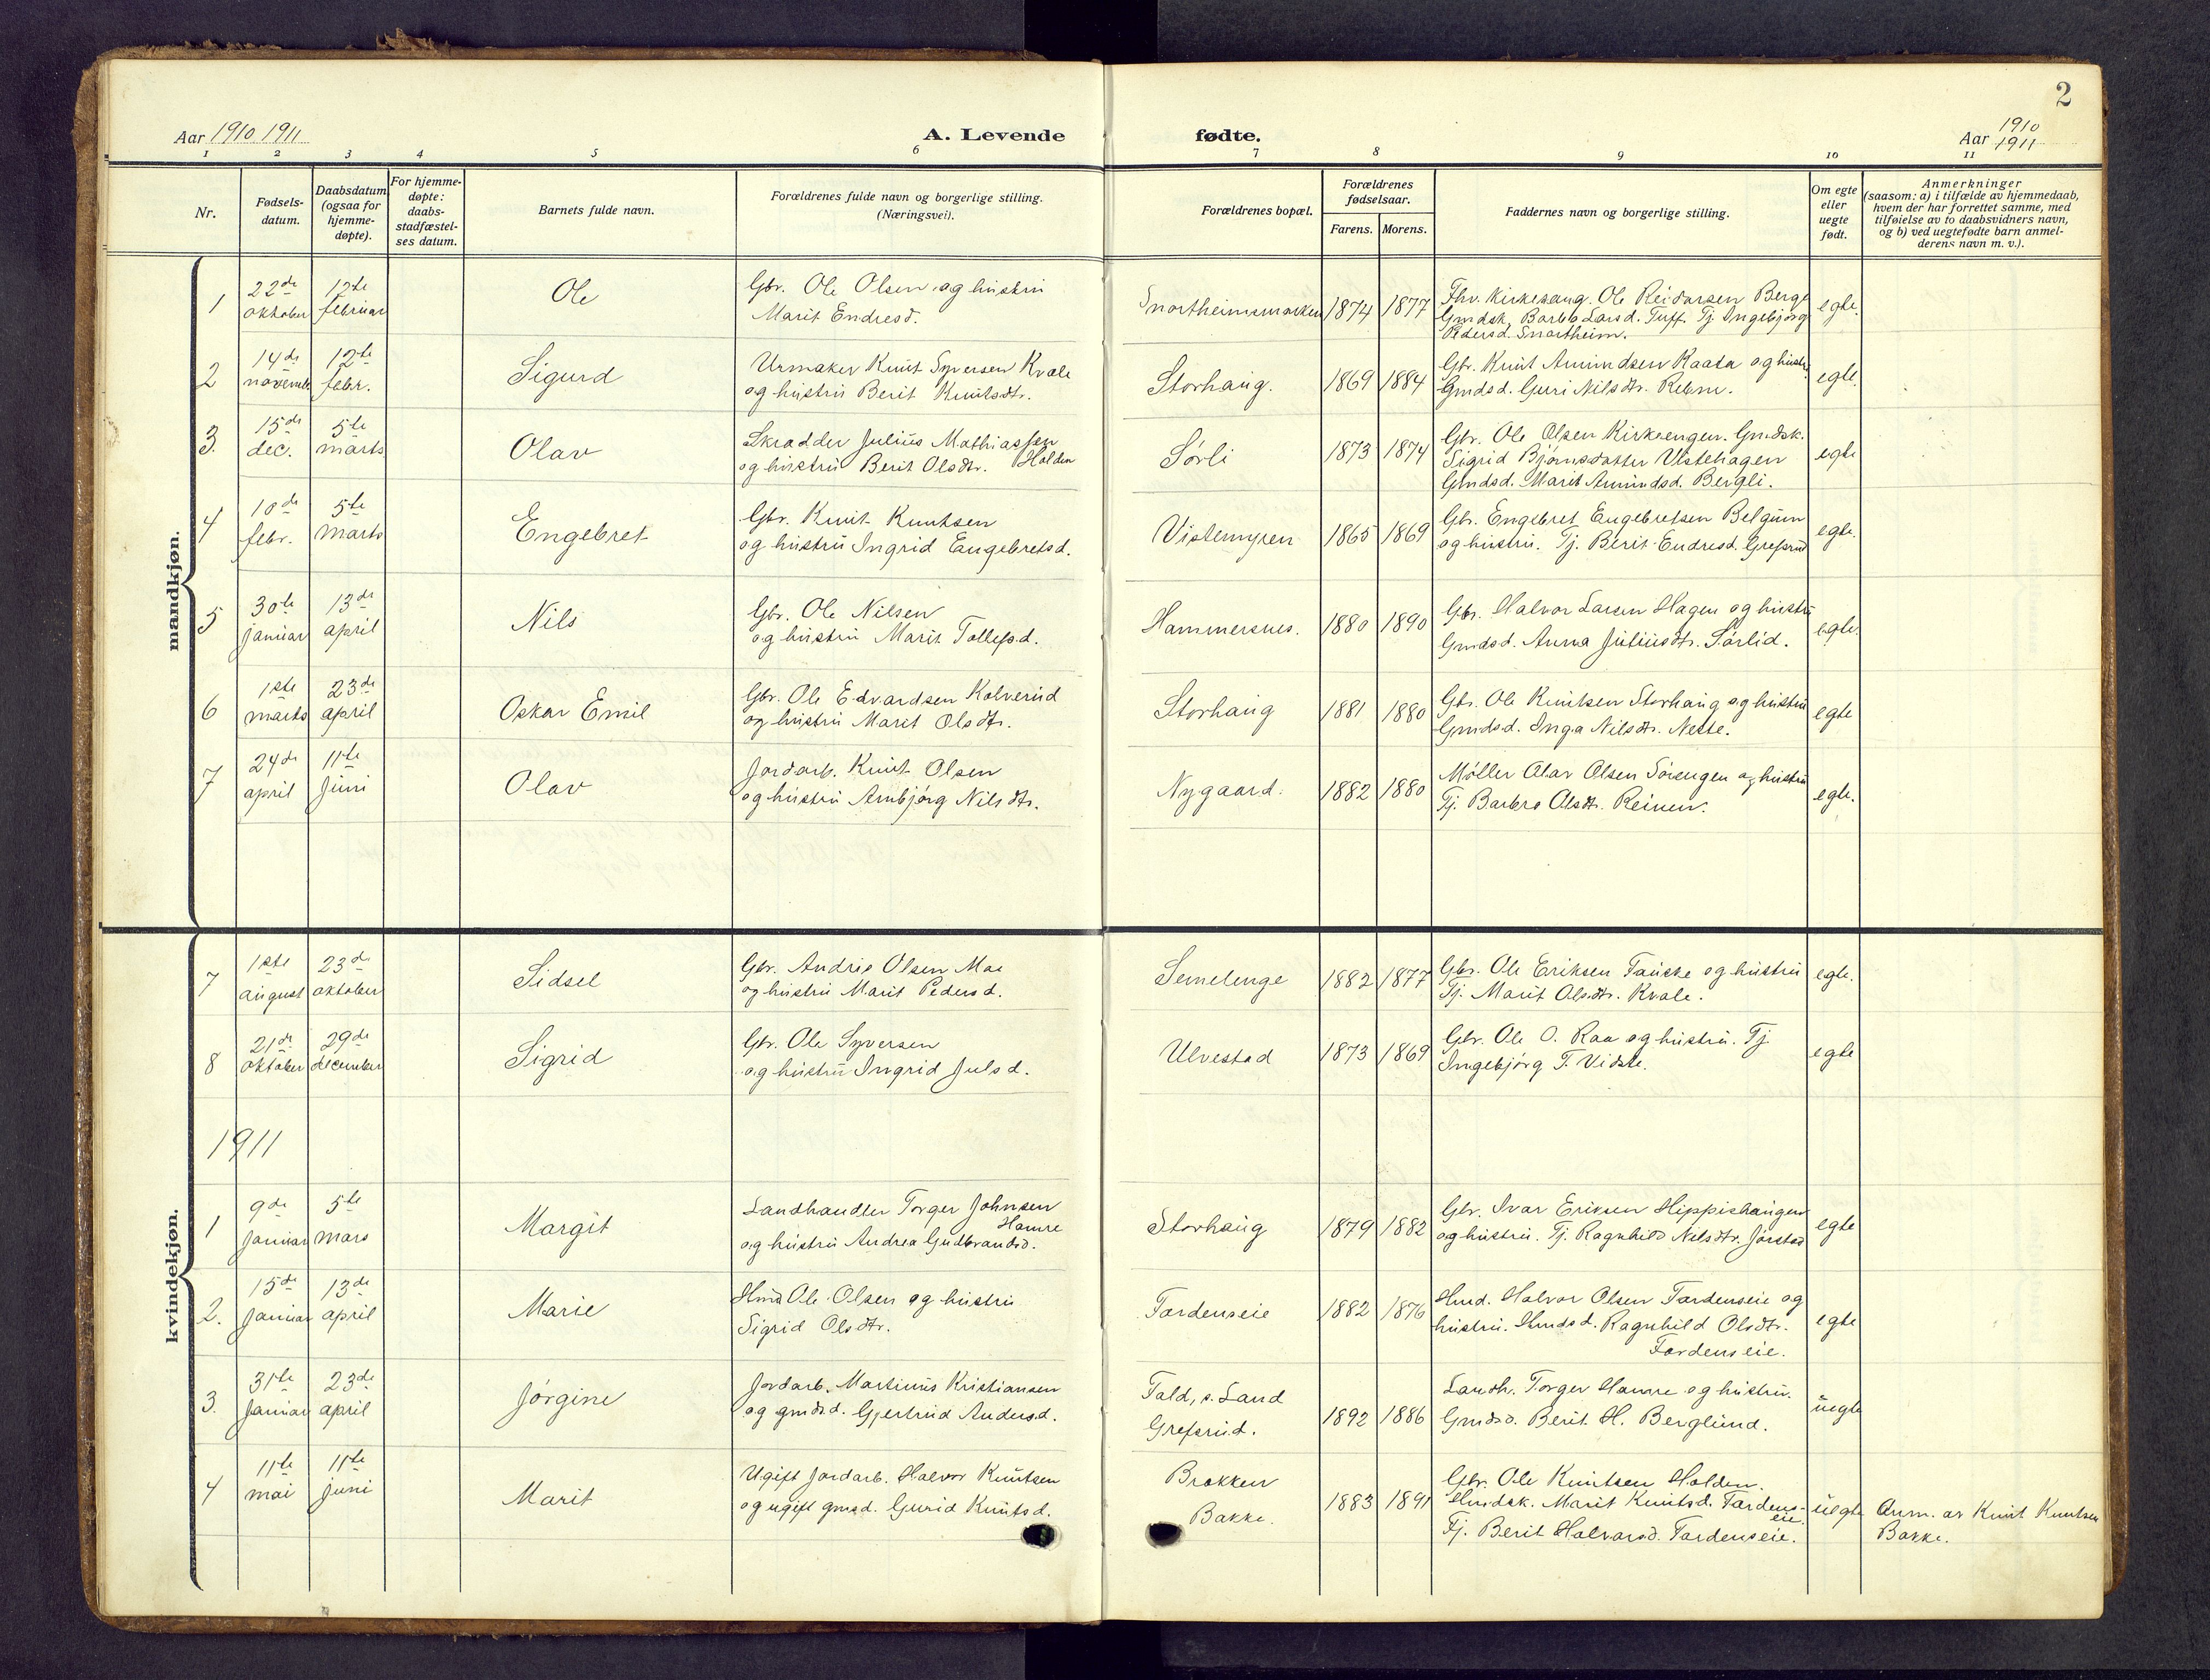 2
Aar 1910 1911
A. Levende
fødte.
Aar 1910
1911
1 2 3 4 5 6 7 8 9 10 11
Nr.
Fødsels-
datum.
Daabsdatum
(ogsaa for
hjemme-
døpte).
For hjemme-
døpte:
daabs-
stadfæstel-
ses datum.
Barnets fulde navn.
Forældrenes fulde navn og borgerlige stilling.
(Næringsvei).
Forældrenes bopæl.
Forældrenes
fødselsaar.
Farens. Morens.
Faddernes navn og borgerlige stilling.
Om egte
eller
uegte
født.
Anmerkninger
(saasom: a) i tilfælde av hjemmedaab,
hvem der har forrettet samme, med
tilføielse av to daabsvidners navn,
og b) ved uegtefødte barn anmel-
derens navn m. v.).
mandkjøn.
1
22de
oktober
12te
februar
Ole
Gbr. Ole Olsen og hustru
Marit Endresd.
Snortheimsmarken
1874 1877
Fhv. Kirkesang. Ole Reidarsen Berge
Gmdsk. Barbo Larsd. Tuff. Tj. Ingebjørg
Pedersd. Snortheim.
egte.
2
14de
novembe
12te
febr.
Sigurd
Urmaker Knut Syversen Kvale
og hustru Berit Knutsdtr.
Storhaug.
1869 1884
Gbr. Knut Amundsen Kaata og hustru
Gmdsd. Guri Nilsdtr.
egte.
3.
15de
dec.
5te
marts
Olav
Skradder Julius Mathiassen
Holden
og hustru Berit Olsdtr.
Sørli
1873 1874
Gbr. Ole Olsen Kirkeengen. Gmdsk.
Sigrid Bjørnsdatter Vistehagen
Gmdsd. Marit Amundsd. Bergli.
egte
4
10de
febr.
5te
marts
Engebret
Gbr. Knut Knutsen
og hustru Ingrid Engebretsd.
Vistemyren
1865 1869
Gbr. Engebret Engebretsen Belgum
og hustru. Tj. Berit Endresd. Grefsrud
egte.
5
30te
januar
13de
april
Nils
Gbr. Ole Nilsen
og hustru Marit Tollefsd.
Hammersnes.
1880 1890
Gbr. Halvor Larsen Hagen og hustru
Gmdsd. Anna Juliusdtr. Sørlid.
egte.
6
1ste
marts
23de
april
Oskar Emil
Gbr. Ole Edvardsen Kolverud
og hustru Marit Olsdtr.
Storhaug
1881 1880
Gbr. Ole Knutsen Storhaug og hustru
Gmdsd. Inga Nilsdtr. Neste.
egte
7
24de
april
11te
juni
Olav
Jordarb. Knut Olsen
og hustru Arnbjørg Nilsdtr.
Nygaard.
1882 1880
Møller Olav Olsen Sørengen og hustru
Tj. Barbro Olsdtr. Reinen.
egte.
kvindekjøn.
7
1ste
august
23de
oktober
Sidsel
Gbr. Andris Olsen Moe
og hustru Marit Pedersd.
Semelenge
1882 1877
Gbr. Ole Eriksen Fauske og hustru
Tj. Marit Olsdtr. Kvale.
egte.
8
21de
oktober
29de
december
Sigrid
Gbr. Ole Syversen
og hustru Ingrid Julsd.
Ulvestad
1873 1869
Gbr. Ole O. Raa og hustru. Tj
Ingebjørg T. Vidste.
egte
1911
1
9de
januar
5te
mars
Margit
Landhandler Torger Johnsen
Hamre
og hustru Andrea Gudbrandsd.
Storhaug
1879 1882
Gbr. Ivar Eriksen Hippishaugen
og hustru. Tj. Ragnhild Nilsdtr. Jørstad
egte
2.
15de
januar
13de
april
Marie
Hmd Ole Olsen og hustru
Sigrid Olsdtr.
Fordenseie
1882 1876
Hmd. Halvor Olsen Fordenseie og
hustru. Hmdsd. Ragnhild Olsdtr.
Fordenseie.
egte
3.
31te
januar
23de
april
Jørgine
Jordarb. Martinus Kristiansen
og gmdsd. Gjertrud Andersd.
Fald, s. Land
Grefsrud.
1892 1886
Landh. Torger Hamre og hustru.
Gmdsd. Berit H. Berglund.
uegte
4
11te
mai
11te
juni
Marit
Ugift Jordarb. Halvor Knutsen
og ugift gmsd. Gurid Knutsd.
Brokken
Bakke.
1883 1891
Gbr. Ole Knutsen Holden.
Hmdsk. Marit Knutsd. Fordens-
eie.
Tj. Berit Halvorsd. Fordenseie.
uegte
Anm. av Knut Knutsen
Bakke.